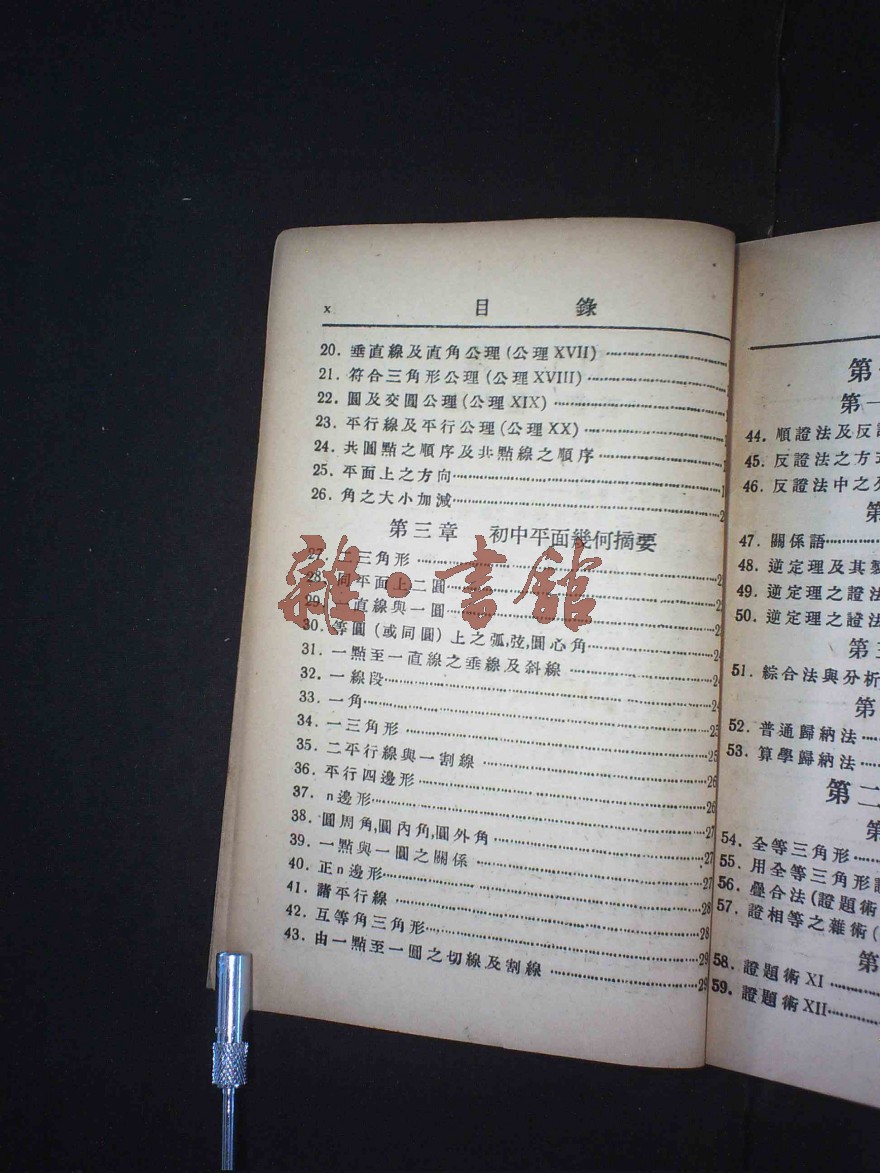 x 目 錄
20. 垂直線及直角公理(公理XVII)
21. 符合三角形公理(公理XVIII)
22. 圓及交圓公理(公理XIX)
23. 平行線及平行公理(公理XX)
24. 共圓點之順序及共點線之順序
25. 平面上之方向
26. 角之大小加減
第三章 初中平面幾何摘要
27. 二三角形
28. 同平面上二圓
29. 直線與一圓
30. 等圓(或同圓)上之弧,弦,圓心角 24
31. 一點至一直線之垂線及斜線 24
32. 一線段 24
33. 一角 25
34. 一三角形 25
35. 二平行線與一割線 26
36. 平行四邊形 26
37. n邊形 27
38. 圓周角,圓內角,圓外角 27
39. 一點與一圓之關係 27
40. 正n邊形 28
41. 諧平行線 28
42. 互等角三角形 29
43. 由一點至一圓之切線及割線 29
雜·書館
第
第一
44. 順證法及反
45. 反證法之方
46. 反證法中之
第
47. 關係語
48. 逆定理及其
49. 逆定理之證法
50. 逆定理之證法
第三
51. 綜合法與分析
第
52. 普通歸納法
53. 算學歸納法
第二
第
54. 全等三角形
55. 用全等三角形
56. 疊合法(證題術
57. 證相等之雜術(
第
58. 證題術XI
59. 證題術XII